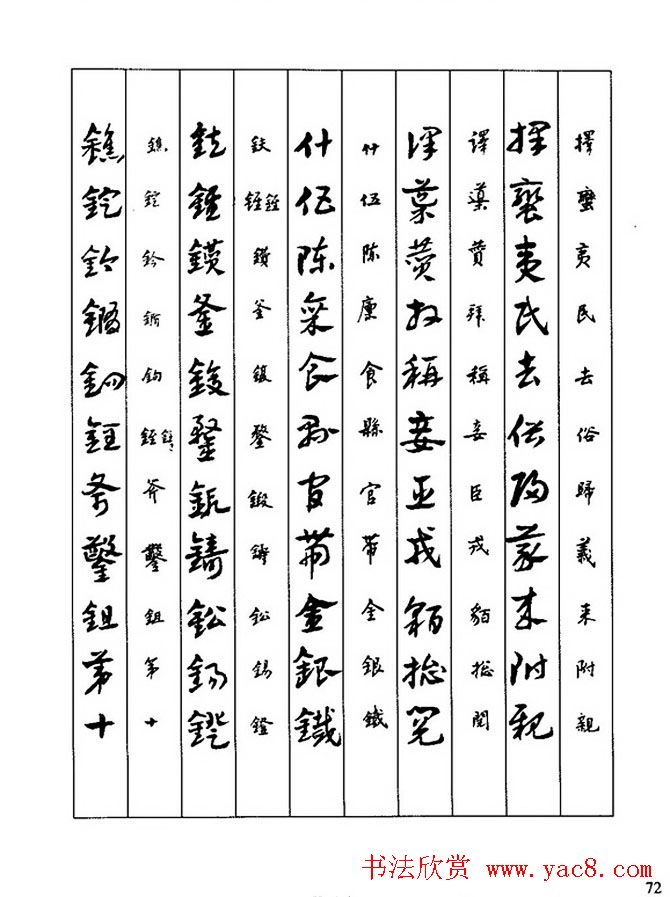 擇蠻夷民去俗歸義来附親
擇蠻夷民去俗歸義来附親
譯導賛拜稱妾臣戎貊捴閲
譯導賛拜稱妾臣戎貊捴閲
什伍陳廩食縣官帶金銀鐵
什伍陳廩食縣官帶金銀鐵
鈇鑽釜鍑鍪鍛鑄鈆錫鐙
鈇錐鑽釜鍑鍪鍛鑄鈆錫鐙
鐎錠鈐鉤銍斧鑿鉏第十
鐎錠鈐鉤銍斧鑿鉏第十
书法欣赏 www.yac8.com
72